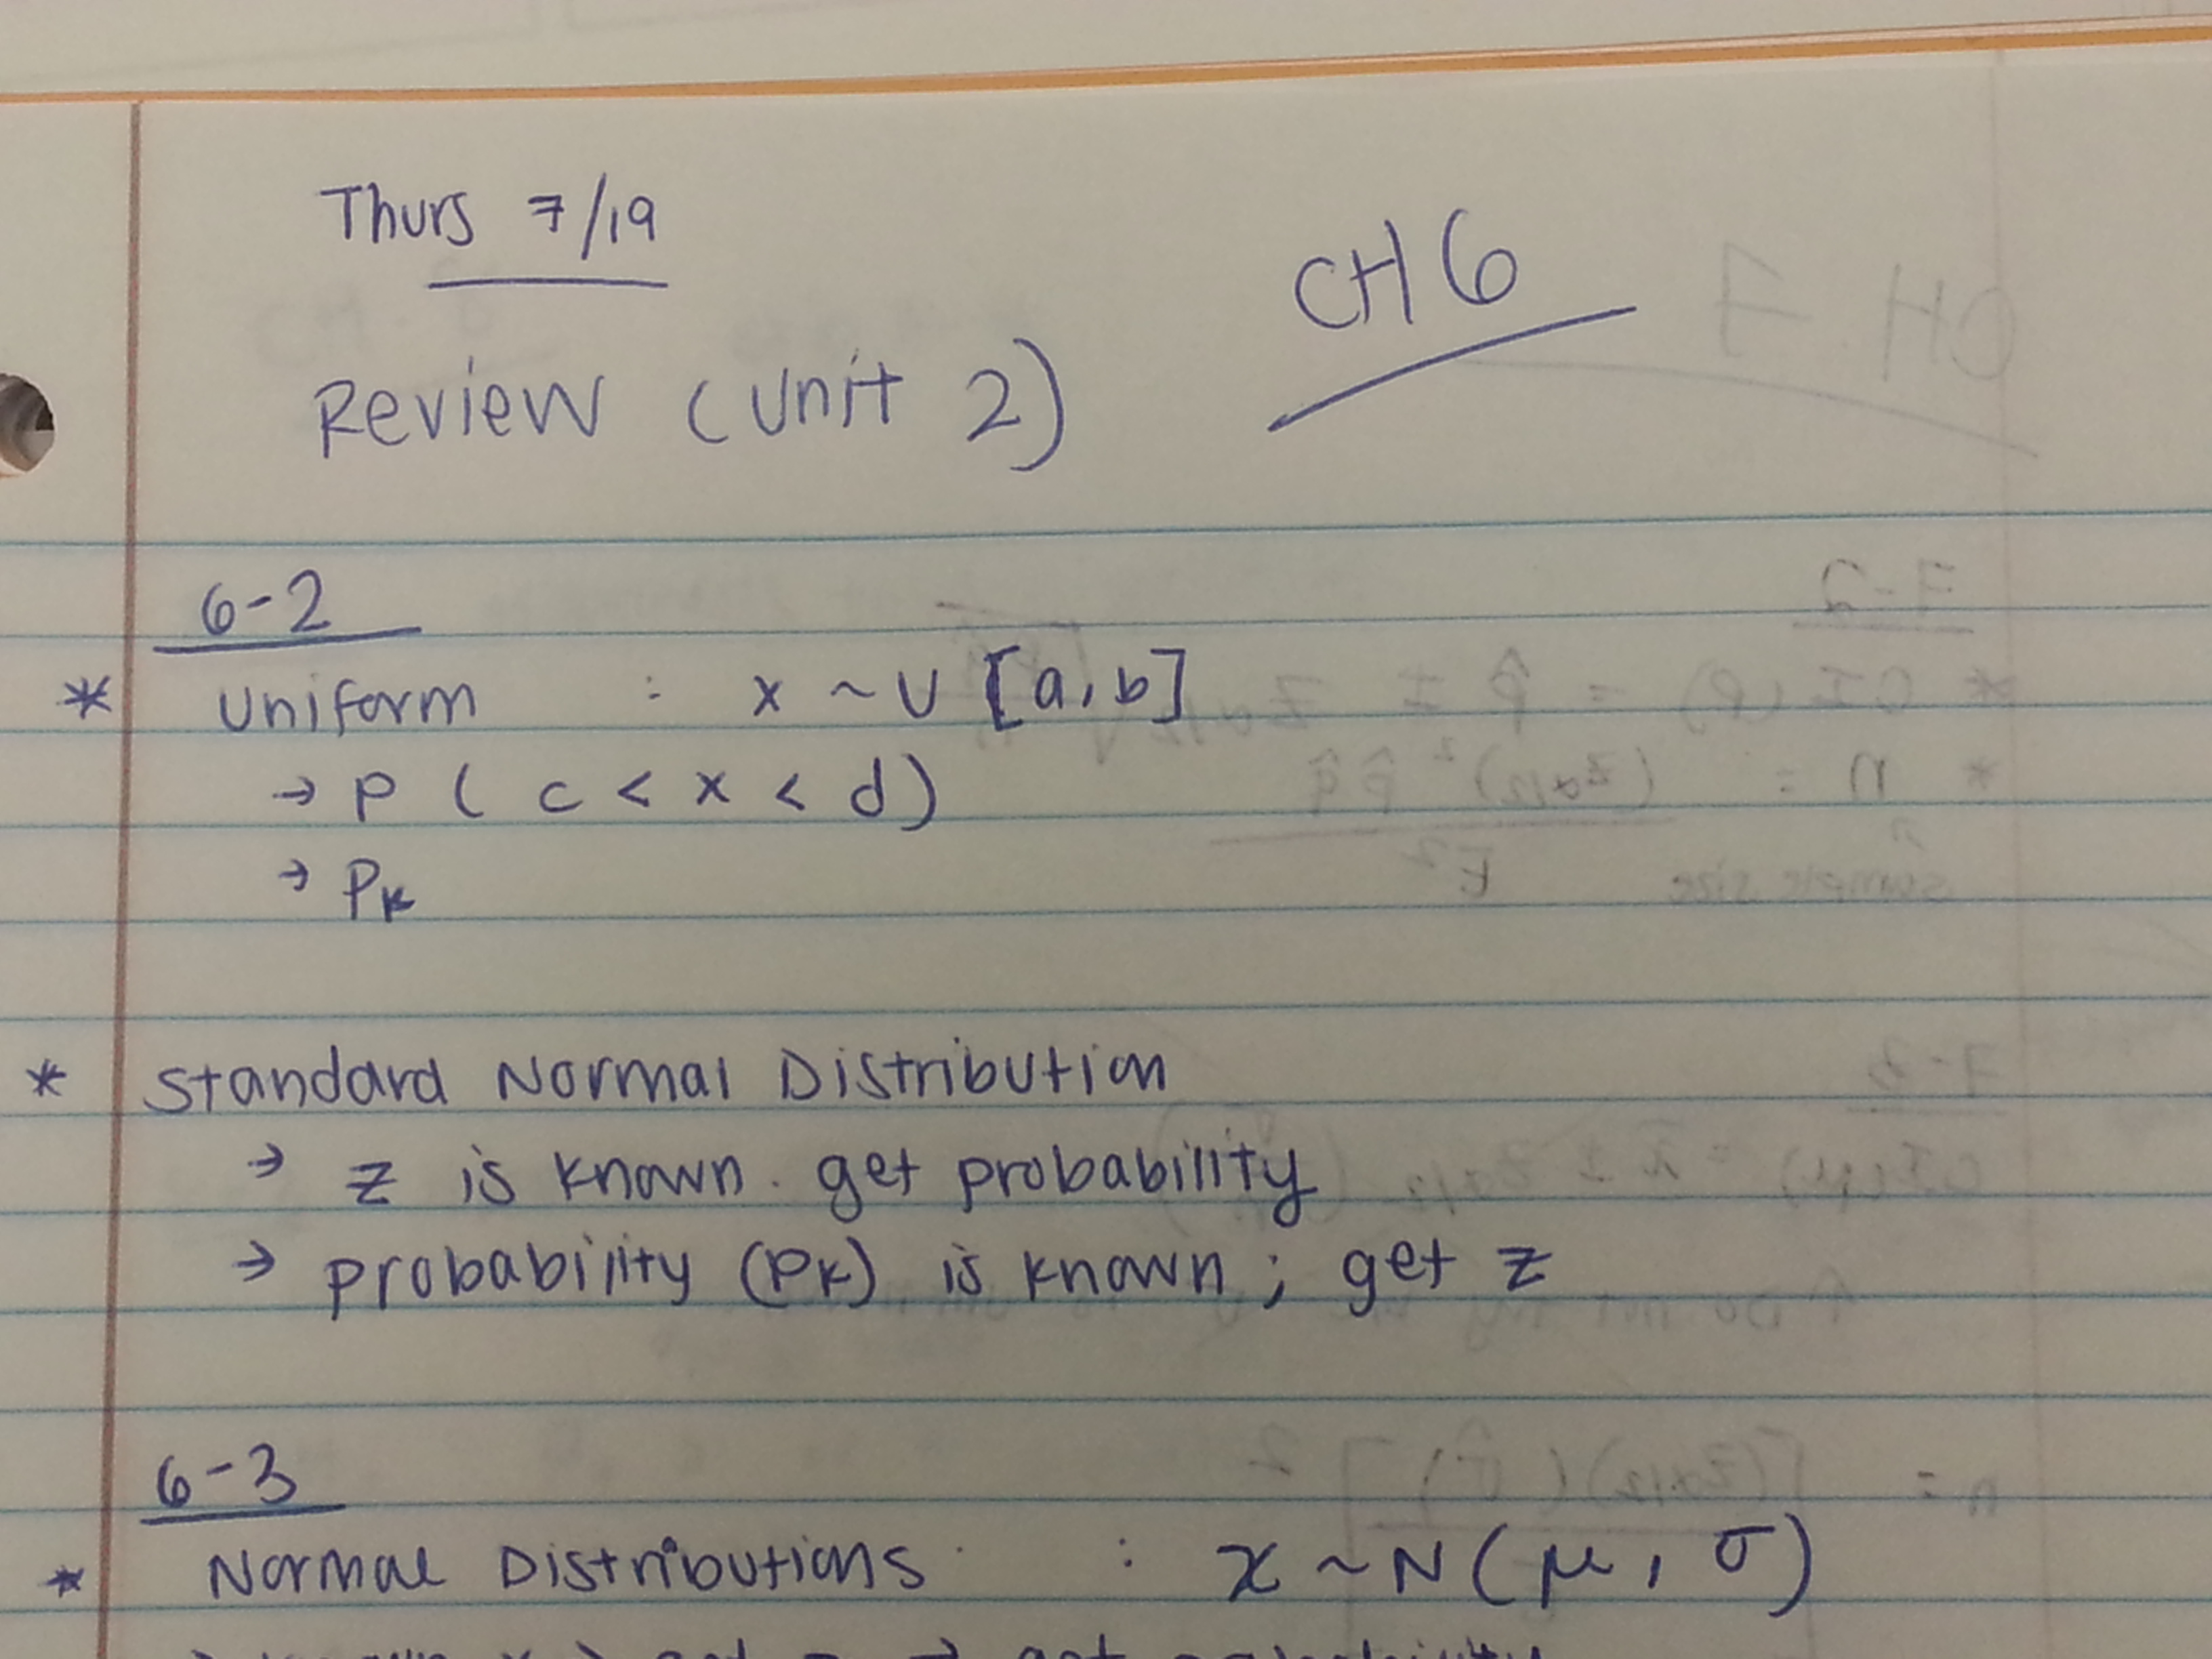 Thurs 7/19
CH 6
Review (Unit 2)
6-2
* Uniform : x ~ U [a, b]
→ P ( c < x < d )
→ Pk
* Standard Normal Distribution
→ z is known. get probability
→ probability (Pk) is known ; get z
6-3
* Normal Distributions : x ~ N ( μ , σ )